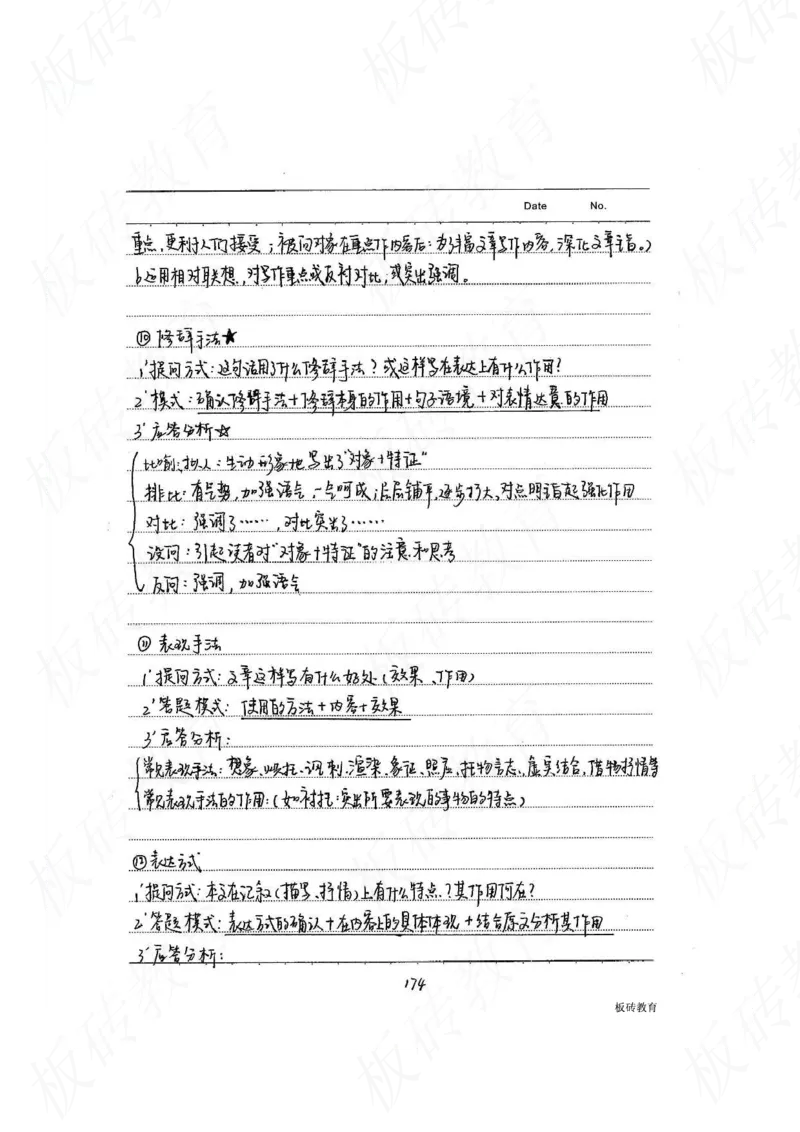 Date No.
重点,更利于人们接受;被问对象在重点作内容后:为丰富文章写作内容,深化文章主旨。)
b运用相对联想,对写作重点或反衬对比,或突出强调。
⑩ 修辞手法★
1' 提问方式:这句话用了什么修辞手法?或这样写在表达上有什么作用?
2' 模式:确认修辞手法+修辞本身的作用+句子语境+对表情达意的作用
3' 应答分析☆
比喻;拟人:生动形象地写出了"对象+特征"
排比:有气势,加强语气,一气呵成;层层铺平,逐步扩大,对点明主旨起强化作用
对比:强调了……,对比突出了……
设问:引起读者对"对象+特征"的注意和思考
反问:强调,加强语气
⑪ 表现手法
1' 提问方式:文章这样写有什么好处(效果、作用)
2' 答题模式:使用的方法+内容+效果
3' 应答分析:
常见表现手法:想象、讽刺、渲染、象征、照应、托物言志、虚实结合,借物抒情等
常见表现手法的作用:(如衬托:突出所要表现的事物的特点)
⑫表达方式
1' 提问方式:本文在记叙(描写、抒情)上有什么特点?其作用何在?
2' 答题模式:表达方式的确认+在内容上的具体体现+结合原文分析其作用
3' 应答分析:
174
板砖教育